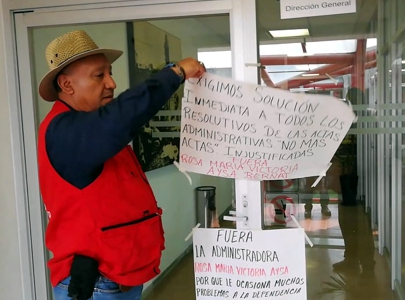 Dirección General
EXIGIMOS SOLUCIÓN
INMEDIATA A TODOS LOS
RESOLUTIVOS DE LAS ACTAS
ADMINISTRATIVAS "NO MAS
ACTAS" INJUSTIFICADAS
FUERA
ROSA MARIA VICTORIA
AYSA BERNAT
FUERA
LA ADMINISTRADORA
ROSA MARIA VICTORIA AYSA
POR QUE LE OCASIONA MUCHOS
PROBLEMAS A LA DEPENDENCIA